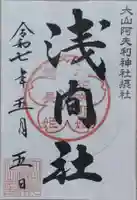 大山阿夫利神社摂社
浅間社
令和七年五月五日